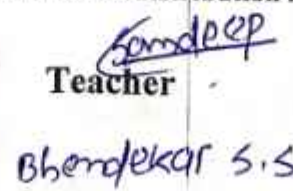 Sandeep
Teacher
Bhendekar S.S